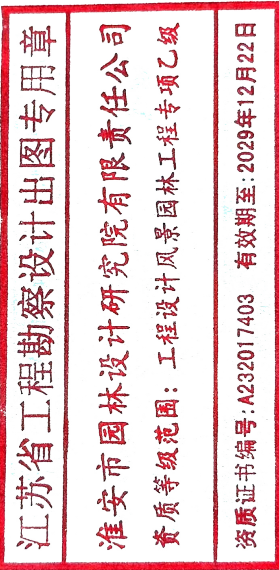 江苏省工程勘察设计出图专用章
淮安市园林设计研究院有限责任公司
资质等级范围：工程设计风景园林工程专项乙级
资质证书编号:A232017403 有效期至:2029年12月22日